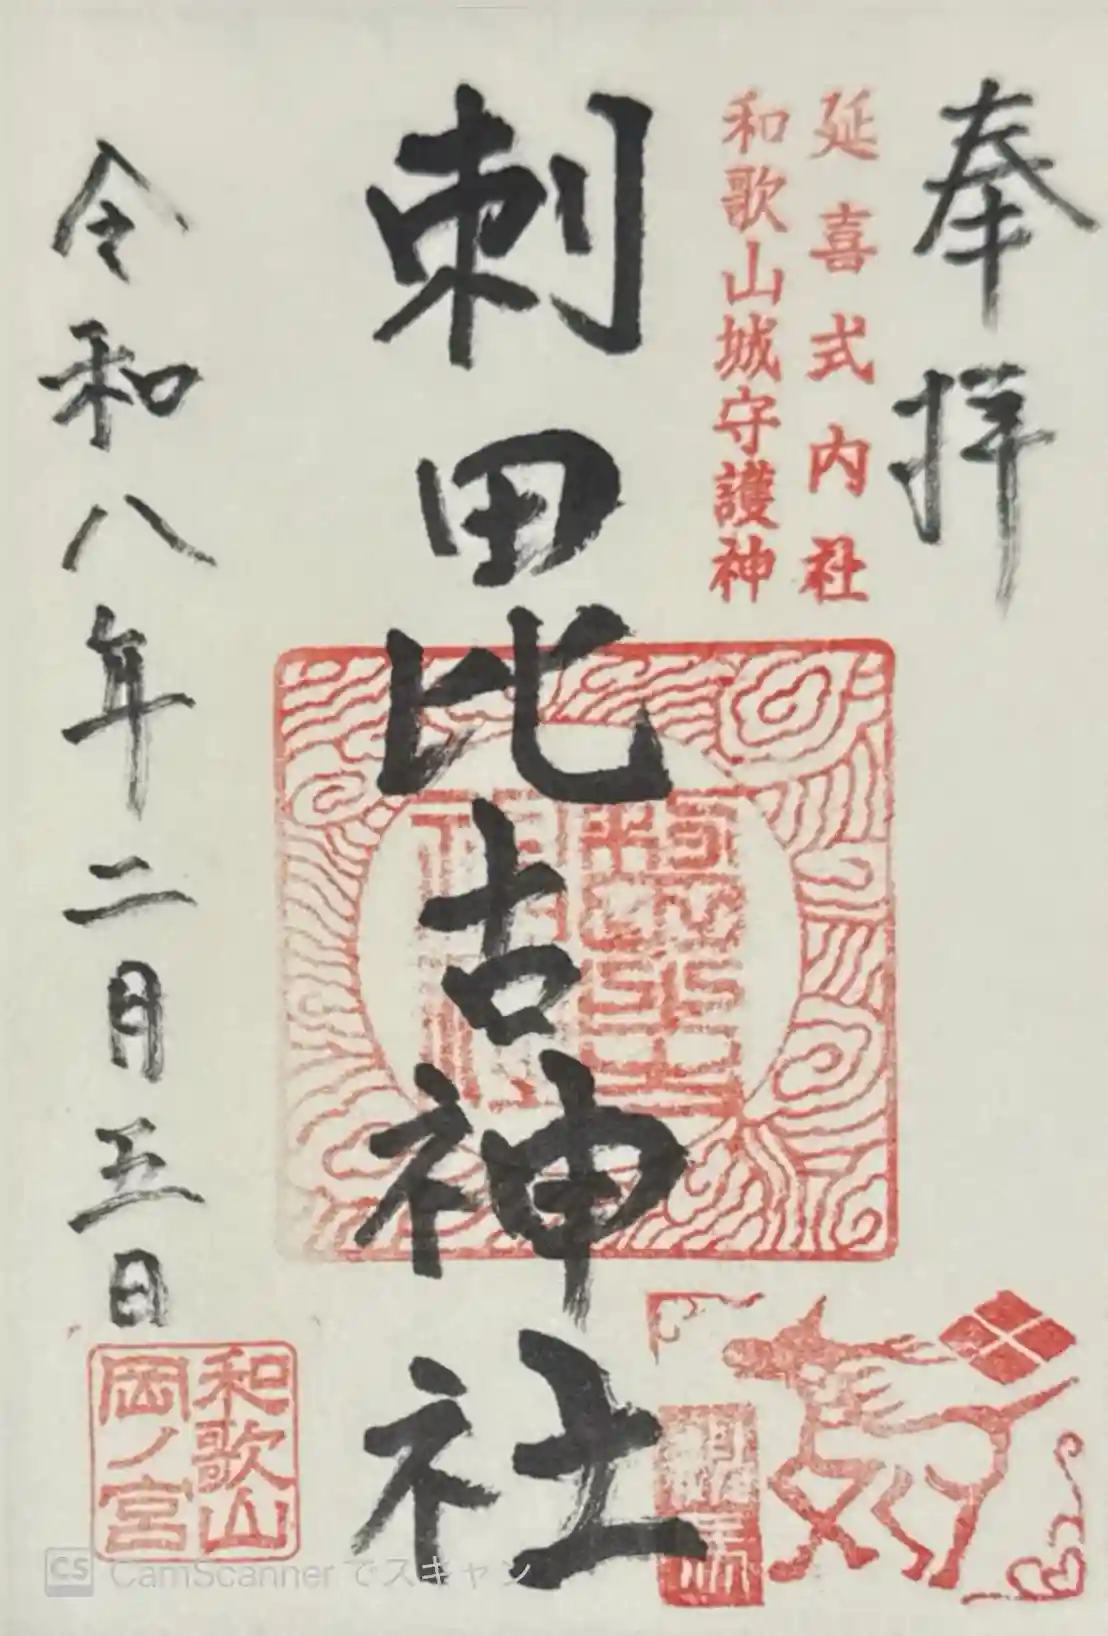 奉拝
延喜式内社
和歌山城守護神
刺田比古神社
令和八年二月五日
和歌山
岡ノ宮
CS CamScannerでスキャン